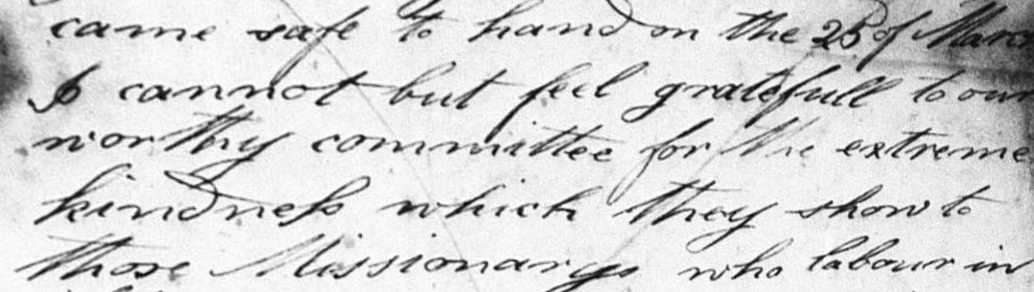 came safe to hand on the 25 of Marc
I cannot but feel gratefull to our
worthy committee for the extreme
kindness which they show to
those Missionarys who labour in